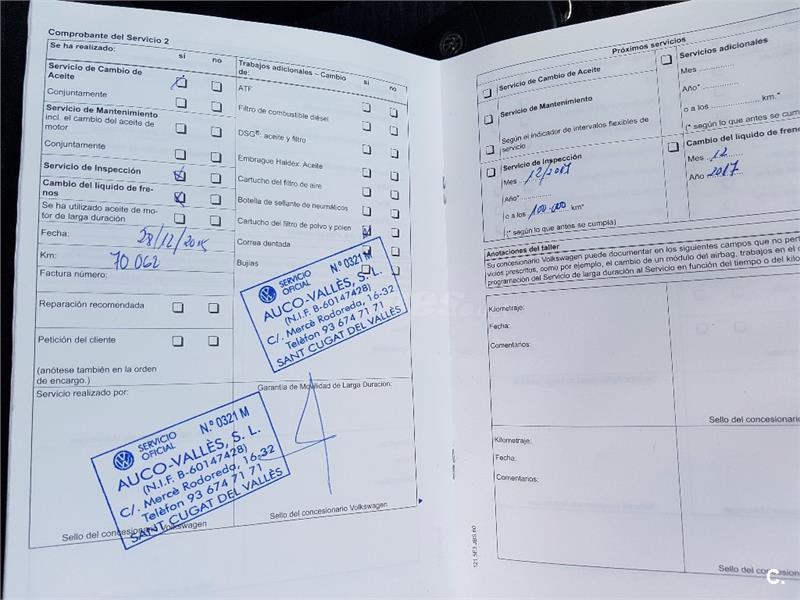 Comprobante del Servicio 2
Se ha realizado: sí no
Servicio de Cambio de
Aceite
Conjuntamente
Servicio de Mantenimiento
incl. el cambio del aceite de
motor
Conjuntamente
Servicio de Inspección
Cambio del líquido de fre-
nos
Se ha utilizado aceite de mo-
tor de larga duración
Fecha: 28/12/2015
Km: 70062
Factura número:
Reparación recomendada
Petición del cliente
(anótese también en la orden
de encargo.)
Servicio realizado por:
Trabajos adicionales – Cambio
de: sí no
ATF
Filtro de combustible diésel
DSG®- aceite y filtro
Embrague Haldex. Aceite
Cartucho del filtro de aire
Botella de sellante de neumáticos
Cartucho del filtro de polvo y polen
Correa dentada
Bujías
SERVICIO
OFICIAL
N.º 0321 M
AUCO-VALLÈS, S. L.
(N.I.F. B-60147428)
C/. Mercè Rodoreda, 16-32
Telèfon 93 674 71 71
SANT CUGAT DEL VALLÈS
Garantía de Movilidad de Larga Duración:
SERVICIO
OFICIAL
N.º 0321 M
AUCO-VALLÈS, S. L.
(N.I.F. B-60147428)
C/. Mercè Rodoreda, 16-32
Telèfon 93 674 71 71
SANT CUGAT DEL VALLÈS
Sello del concesionario Volkswagen
Sello del concesionario Volkswagen
Próximos servicios
Servicio de Cambio de Aceite
Servicio de Mantenimiento
Según el indicador de intervalos flexibles de
servicio
Servicio de Inspección
Mes 12/2017
Año*
o a los 100.000 km*
(* según lo que antes se cumpla)
Servicios adicionales
Mes
Año*
o a los km.*
(* según lo que antes se
Cambio del líquido de freno
Mes 12
Año 2017
Anotaciones del taller
Su concesionario Volkswagen puede documentar en los siguientes campos que no pert
vicios prescritos, como por ejemplo, el cambio de un módulo del airbag, trabajos en el
programación del Servicio de larga duración al Servicio en función del tiempo o del kilo
Kilometraje:
Fecha:
Comentarios:
Sello del concesionario
Kilometraje:
Fecha:
Comentarios:
Sello del concesio
C.